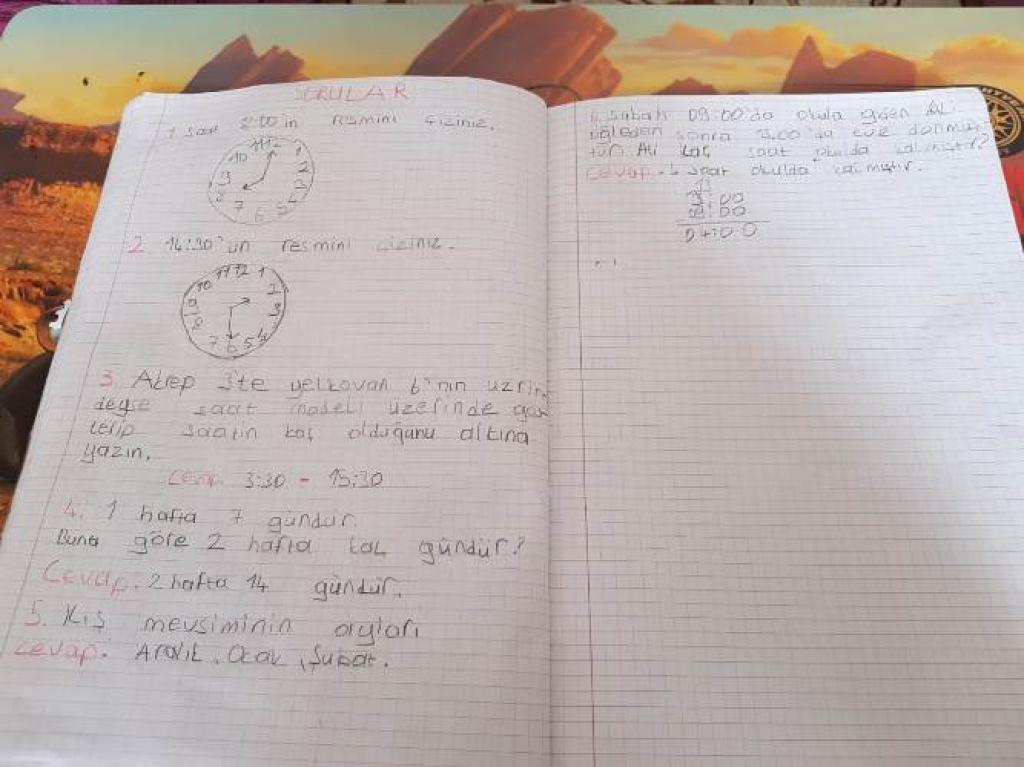 SORULAR
1. saat 8:00'in resmini çiziniz.
11 12 1
10 2
9 3
8 4
7 6 5
2. 14:30'un resmini çiziniz.
11 12 1
10 2
9 3
8 4
7 6 5
3. Akrep 3'te yelkovan 6'nın üzrin
deyse saat modeli üzerinde gös
terip saatin kaç olduğunu altına
yazın.
Cevap. 3:30 - 15:30
4. 1 hafta 7 gündür.
Buna göre 2 hafta kaç gündür?
Cevap. 2 hafta 14 gündür.
5. Kış mevsiminin ayları
Cevap. Aralık, Ocak, Şubat.
6. Sabah 09:00'da okula giden Ali
öğleden sonra 13:00'da eve dönmüş
tür. Ali kaç saat okulda kalmıştır?
Cevap. 4 saat okulda kalmıştır.
13:00
09:00
04:00